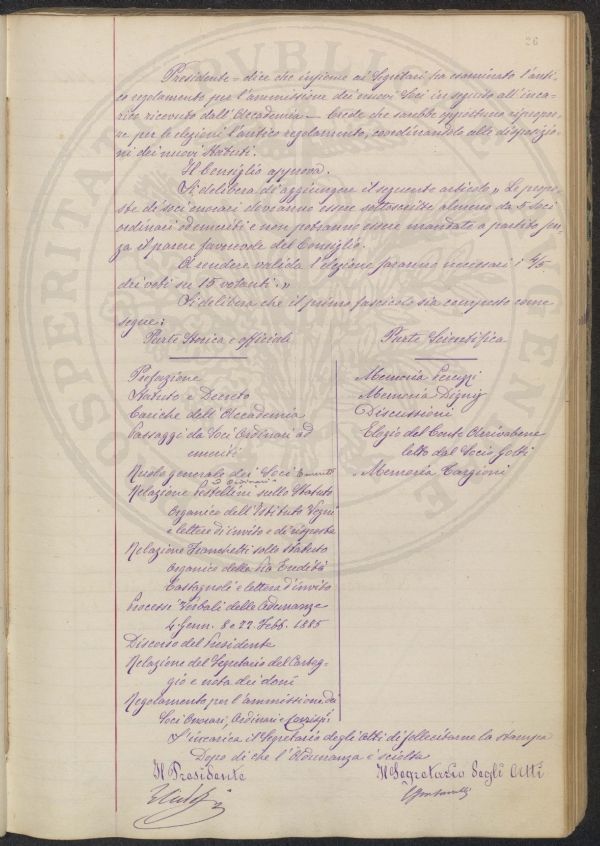 26
Presidente = dice che insieme ai Segretari ha esaminato l'anti-
co regolamento per l'ammissione dei nuovi Soci in seguito all'inca-
rico ricevuto dall'Accademia – Crede che sarebbe opportuno riproporr-
re per le elezioni l'antico regolamento, coordinandolo alle disposizio-
ni dei nuovi Statuti.
Il Consiglio approva.
Si delibera di aggiungere il seguente articolo „ Le propo-
ste di soci onorari dovranno essere sottoscritte almeno da 5 Soci
ordinari ed emeriti e non potranno essere mandate a partito sen-
za il parere favorevole del Consiglio.
A rendere valida l'elezione saranno necessari i 4/5
dei voti su 15 votanti. „
Si delibera che il primo fascicolo sia composto come
segue:
Parte Storica e officiale
Prefazione
Statuto e Decreto
Cariche dell'Accademia
Passaggi da Soci Ordinari ad
emeriti
Ruolo generale dei Soci Emeriti
e Ordinari
Relazione Pestellini sullo Statuto
Organico dell'Istituto Vegni
e lettere d'invito e di risposta
Relazione Franchetti sullo Statuto
organico della Pia Eredità
Castagnoli e lettera d'invito
Processi Verbali delle Adunanze
4 Genn. 8 e 22 Febb. 1885
Discorso del Presidente
Relazione del Segretario del Carteg-
gio e nota dei doni
Regolamento per l'ammissione dei
Soci Onorari, Ordinari e Corrispi
Parte Scientifica
Memoria Peruzzi
Memoria Digny
Discussioni
Elogio del Conte Arrivabene
letto dal Socio
Memoria Targioni
S'incarica il Segretario degli Atti di sollecitarne la stampa
Dopo di che l'Adunanza è sciolta
Il Presidente
Il Segretario degli Atti
PUBLICAE
PROSPERITATI
AUGENDAE